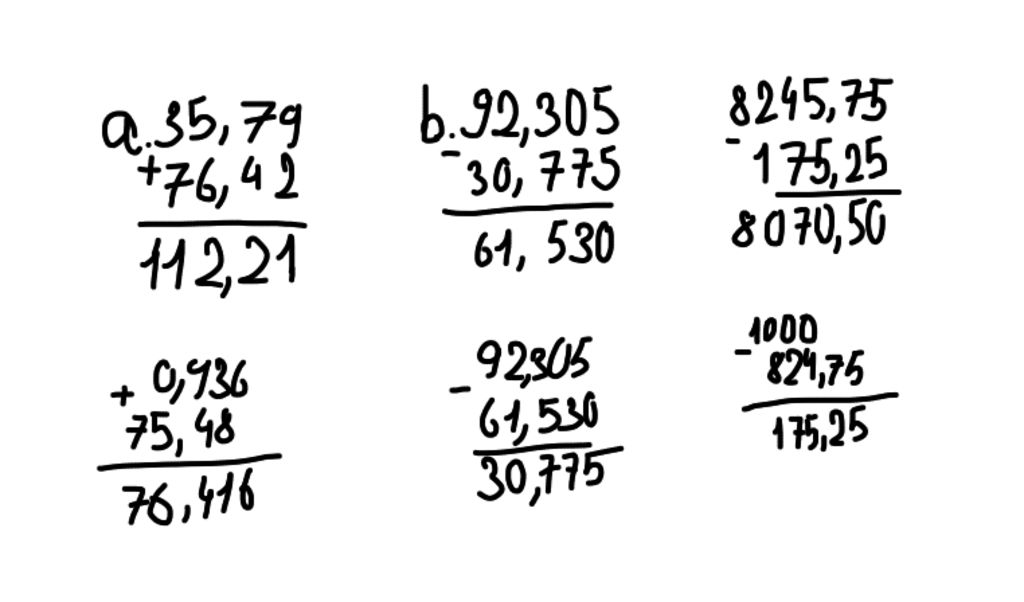 a. 35,79
+ 76,42
112,21
b. 92,305
- 30,775
61,530
8245,75
- 175,25
8070,50
+ 0,936
75,48
76,416
- 92,305
61,530
30,775
- 1000
824,75
175,25